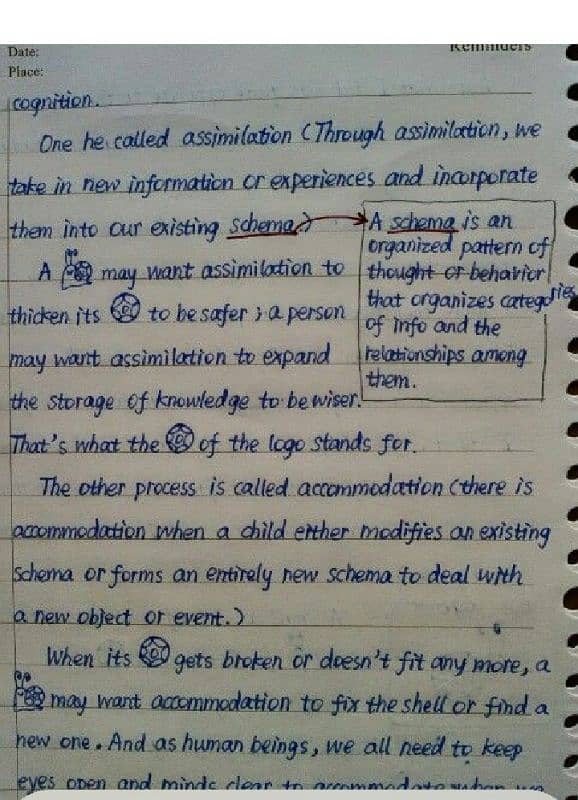 Reminders
Date:
Place:
cognition.
One he called assimilation (Through assimilation, we
take in new information or experiences and incorporate
them into our existing schema.)
A schema is an
organized pattern of
thought or behavior
that organizes categories
of info and the
relationships among
them.
A may want assimilation to
thicken its to be safer ; a person
may want assimilation to expand
the storage of knowledge to be wiser.
That's what the of the logo stands for.
The other process is called accommodation (there is
accommodation when a child either modifies an existing
schema or forms an entirely new schema to deal with
a new object or event.)
When its gets broken or doesn't fit any more, a
may want accommodation to fix the shell or find a
new one. And as human beings, we all need to keep
eyes open and minds clear to accommodate when we